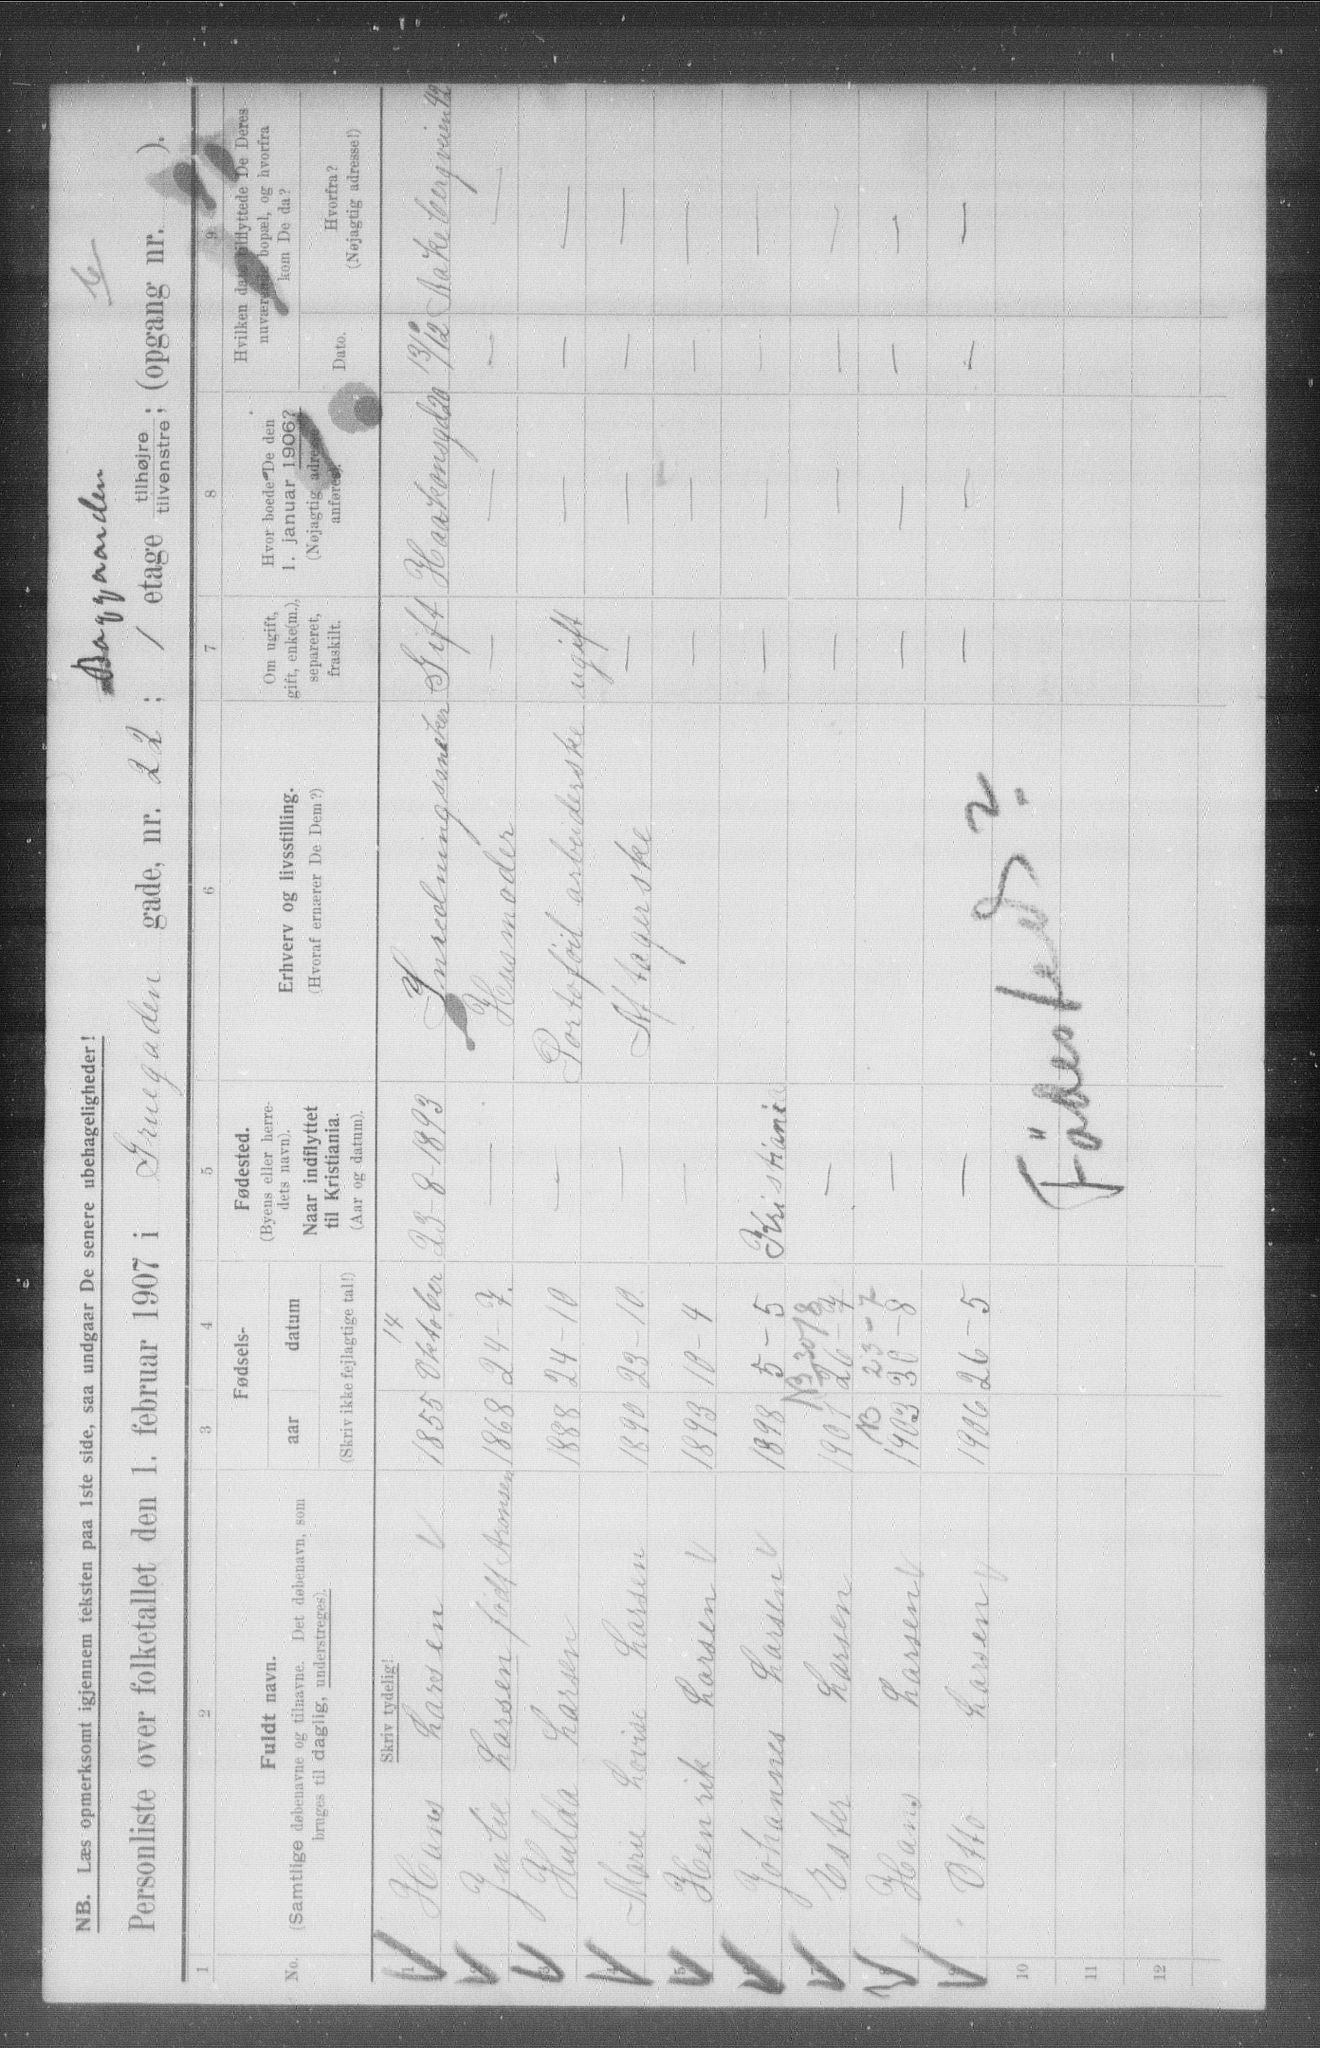 NB. Læs opmerksomt igjennem teksten paa 1ste side, saa undgaar De senere ubehageligheder!
Baggaarden
Personliste over folketallet den 1. februar 1907 i Gruegaden gade, nr. 22; 1 etage tilhøjre / tilvenstre; (opgang nr. ).
1 2 3 4 5 6 7 8 9
No.
Fuldt navn.
(Samtlige døbenavne og tilnavne. Det døbenavn, som
bruges til daglig, understreges).
Fødsels-
aar datum
(Skriv ikke fejlagtige tal!)
Fødested.
(Byens eller herre-
dets navn).
Naar indflyttet
til Kristiania.
(Aar og datum).
Erhverv og livsstilling.
(Hvoraf ernærer De Dem?)
Om ugift,
gift, enke(m.),
separeret,
fraskilt.
Hvor boede De den
1. januar 1906?
(Nøjagtig adresse
anføres).
Hvilken dato tilflyttede De Deres
nuværende bopæl, og hvorfra
kom De da?
Dato.
Hvorfra?
(Nøjagtig adresse!)
Skriv tydelig!
1 Hans Larsen 1855 14 Oktober 23-8-1893 Gift Haakonsgd 20 13/12 Aakebergveien 42
2 Julie Larsen født Aronsen 1868 24-7. — Husmoder — — — —
3 Hulda Larsen 1888 24-10 — Portoføil arbeiderske ugift — — —
4 Marie Lovise Larsen 1890 23-10. — Aftagerske — — — —
5 Henrik Larsen 1893 10-4 — — — — —
6 Johannes Larsen 1898 5-5 Kristiania — — — —
7 Ester Larsen 1901 26-7 — — — — —
B 23-7
8 Hans Larsen 1903 30-8 — — — — —
9 Otto Larsen 1906 26-5 — — — — —
10
11
12
Födested?